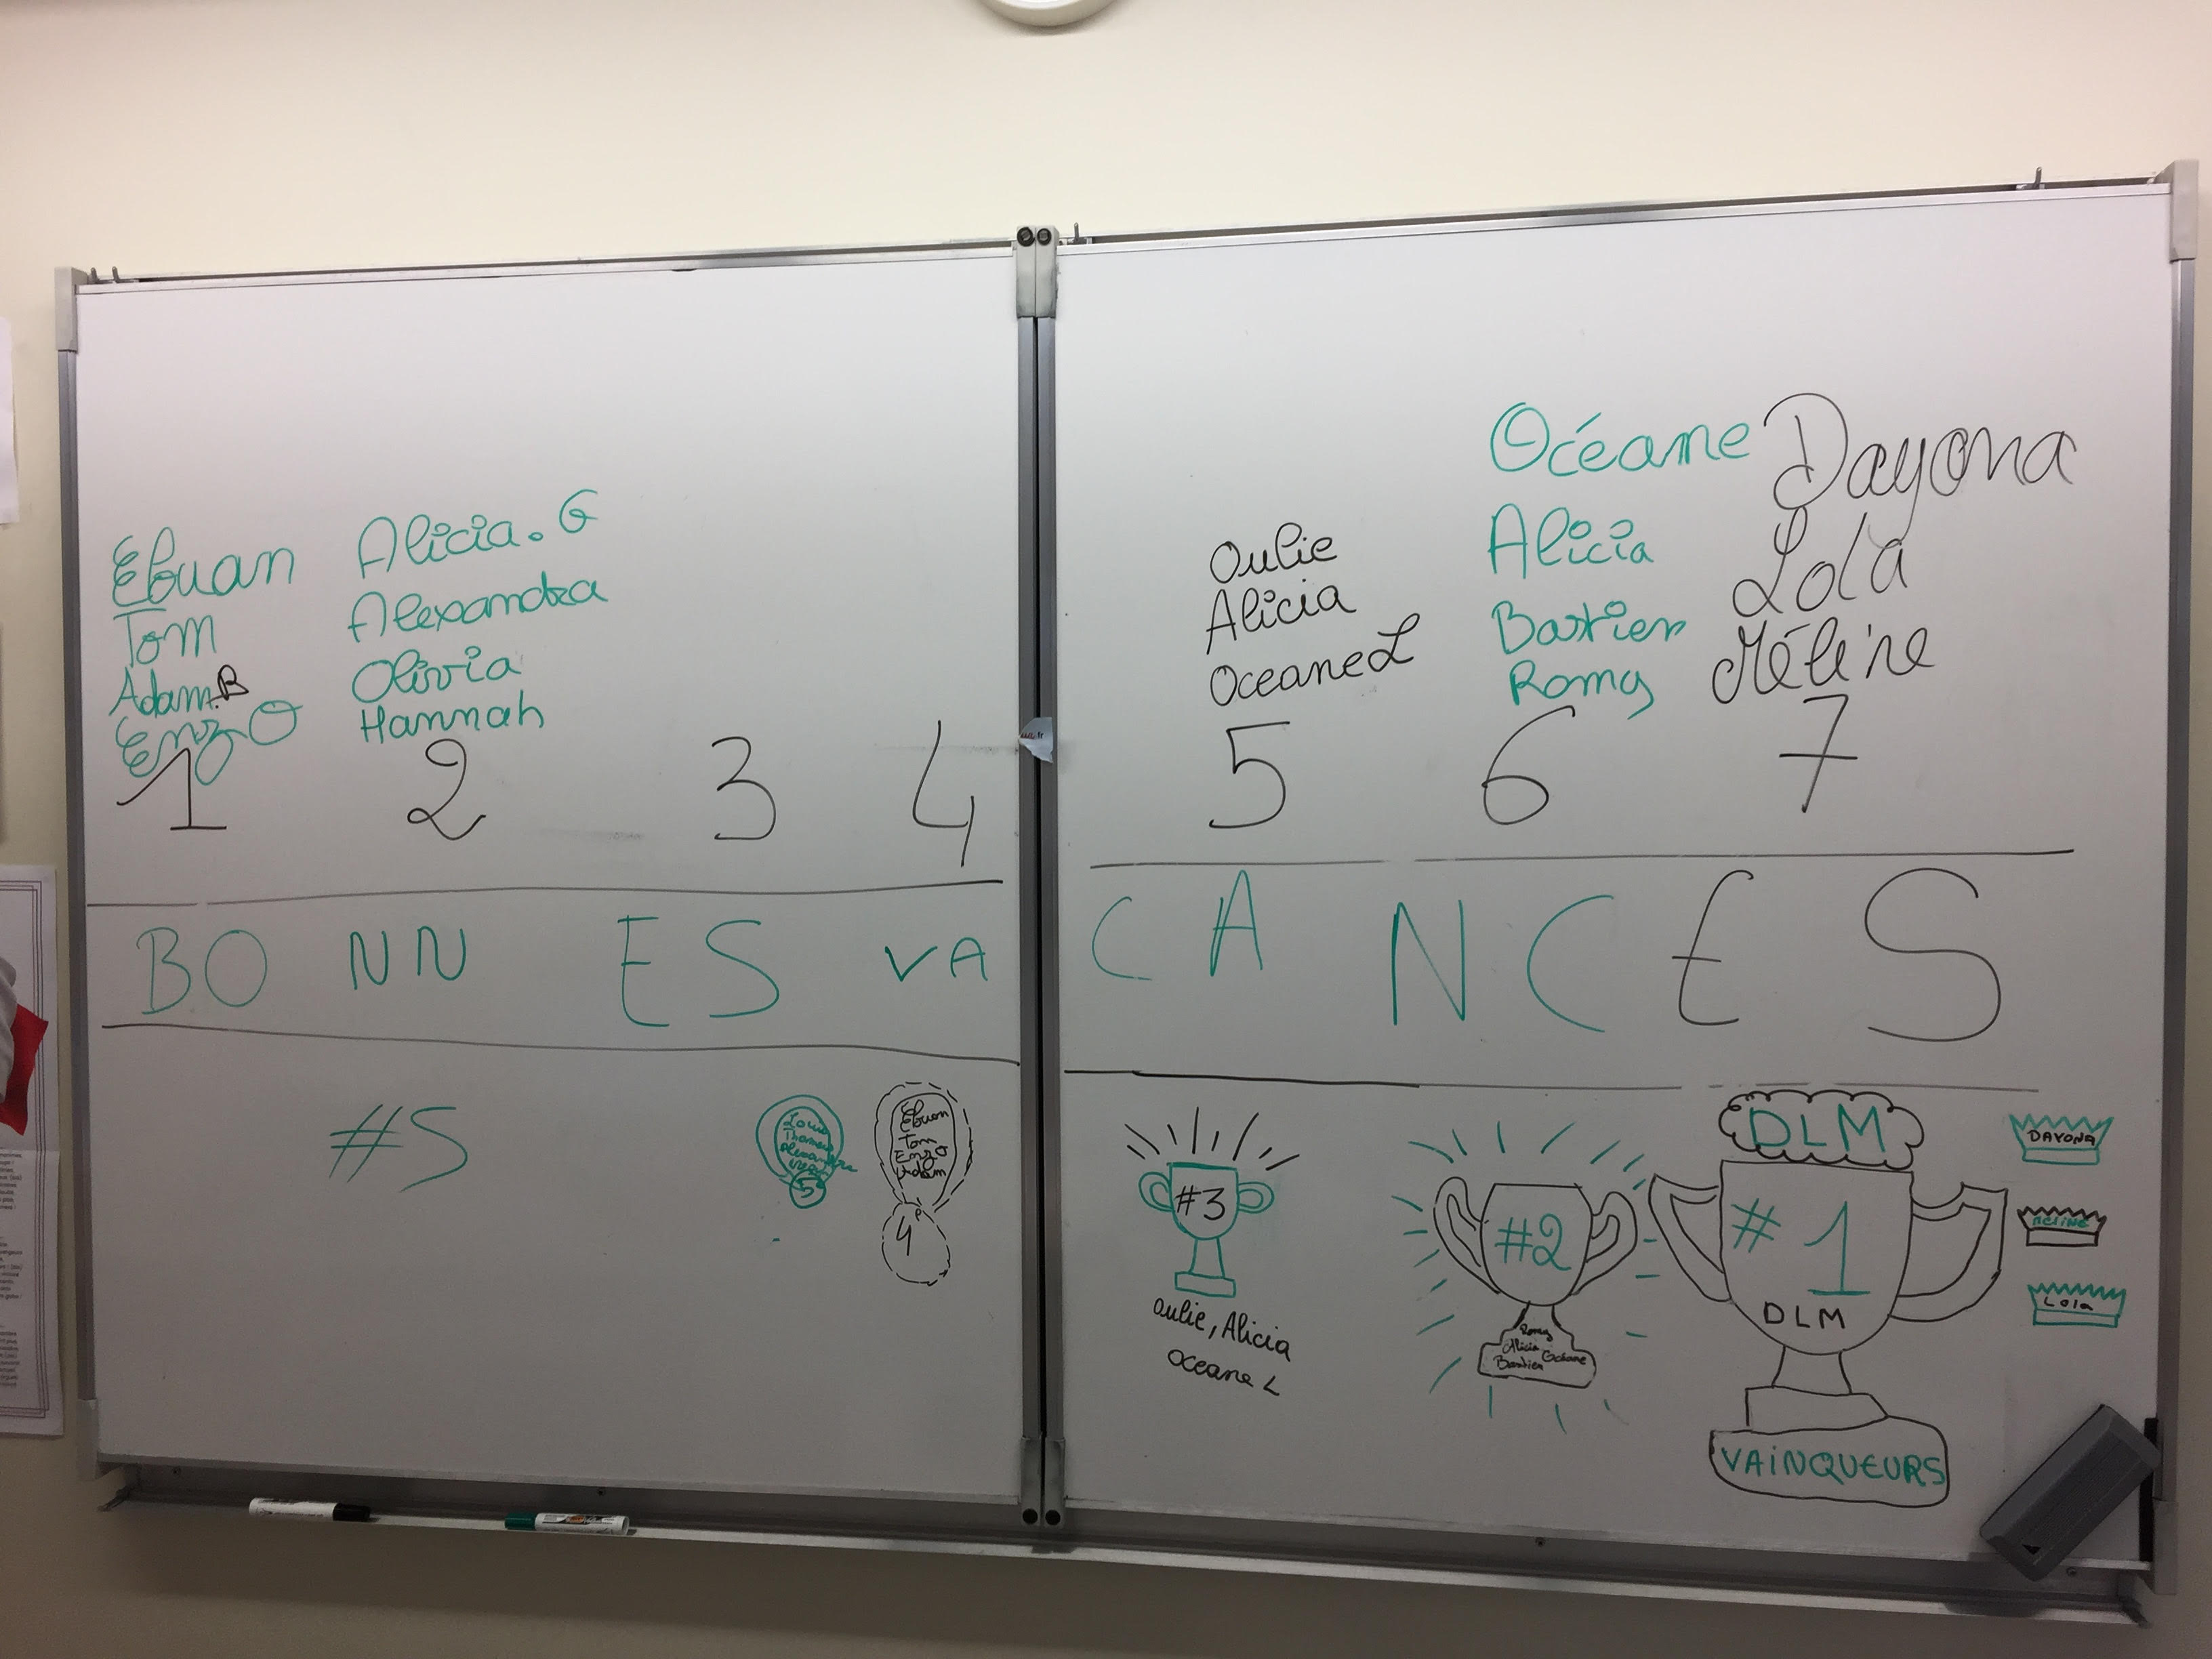 Eƒuan
Tom
Adam.B
EnzO
1
Alicia.G
Alexandra
Olivia
Hannah
2
3
4
Oulie
Alicia
Oceane L
5
Océane
Alicia
Bastien
Romy
6
Dayona
Lola
Méline
7
BO NN ES VA CA NC ES
#5
Louis
5
Tom
EnzO
Adam
4e
#3
Oulie, Alicia
Oceane L
#2
Romy
Alicia Océane
Bastien
DLM
#1
DLM
VAiNQUEURS
DAYONA
MELiNE
Lola